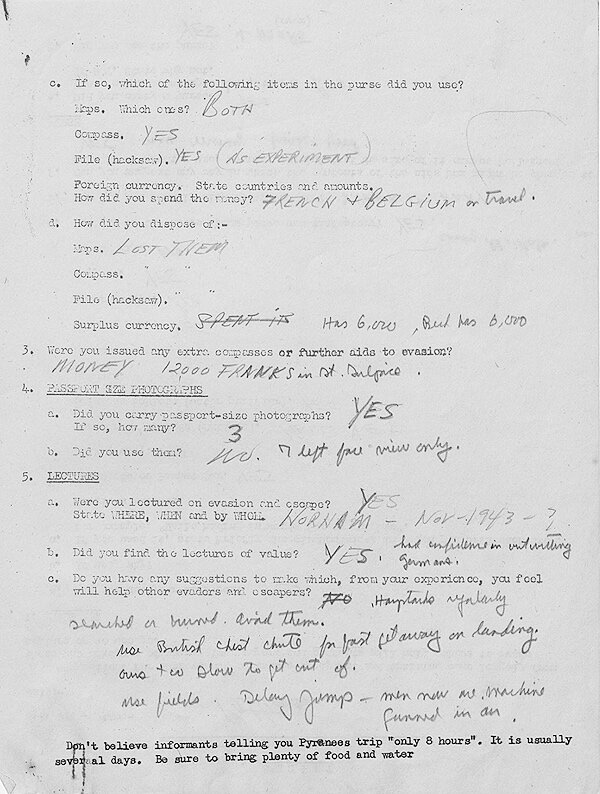 c. If so, which of the following items in the purse did you use?
Maps. Which ones? BOTH
Compass. YES
File (hacksaw). YES (AS EXPERIMENT)
Foreign currency. State countries and amounts.
How did you spend the money? FRENCH + BELGIUM on travel.
d. How did you dispose of:-
Maps. LOST THEM
Compass. " "
File (hacksaw). " "
Surplus currency. SPENT IT Has 6,000, has 6,000
3. Were you issued any extra compasses or further aids to evasion?
MONEY 12000 FRANKS in St.
4. PASSPORT SIZE PHOTOGRAPHS
a. Did you carry passport-size photographs? YES
If so, how many? 3
b. Did you use them? NO. left face view only.
5. LECTURES
a. Were you lectured on evasion and escape? YES
State WHERE, WHEN and by WHOM. - NOV-1943-?
b. Did you find the lectures of value? YES. had confidence in outwitting
Germans.
c. Do you have any suggestions to make which, from your experience, you feel
will help other evaders and escapers? NO Haystacks regularly
searched or burned. Avoid them.
Use British chest chute for fast getaway on landing.
ours too slow to get out of.
Use fields. Delay Jump - men now are machine
gunned in air.
Don't believe informants telling you Pyranees trip "only 8 hours". It is usually
several days. Be sure to bring plenty of food and water